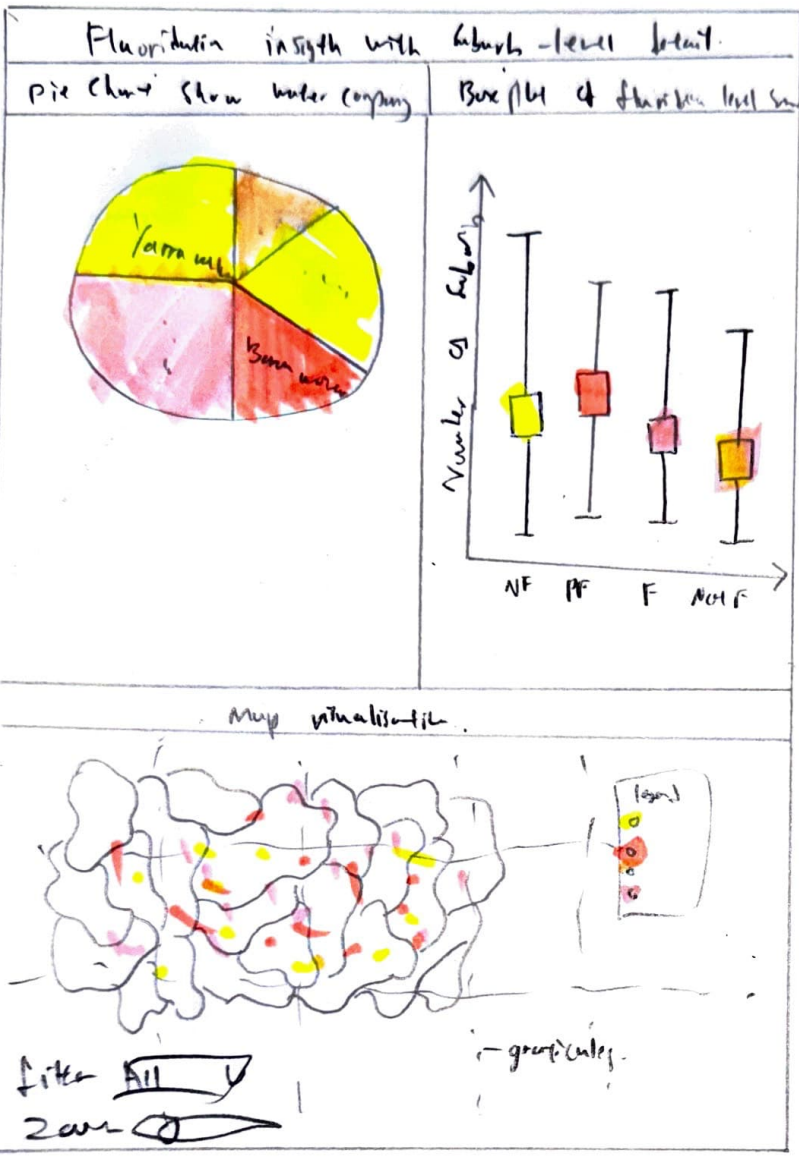 Fluoridatin insigth with Suburb - level detail.
Pie Chart Show water company
Box plot of fluoridation level
Yarra
Number of Suburb
NF PF F Not F
Map visualisation.
legend
graticules.
filter All
Zoom